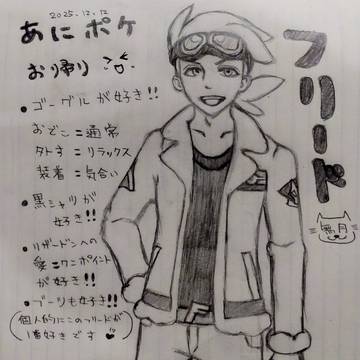 2025.12.12
あにポケ
おり帰り
フリード
●ゴーグルが好き!!
おでこ=通常
外す=リラックス
装着=気合い
●黒シャツが
好き!!
●リザードンへの
愛=ワンポイント
が好き!!
●ブーツも好き!!
個人的にこのフリードが
1番好きです
無月